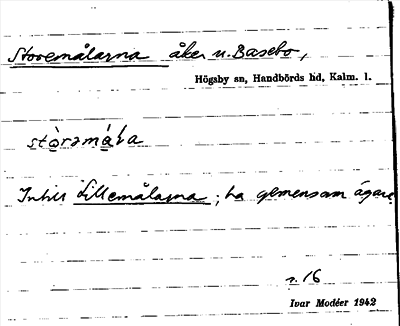 Storemålarna åker u. Basebo,
Högsby sn, Handbörds hd, Kalm. l.
stòrəmáɫa
Intill Lillemålarna; ha gemensam ägare
s. 16
Ivar Modéer 1942